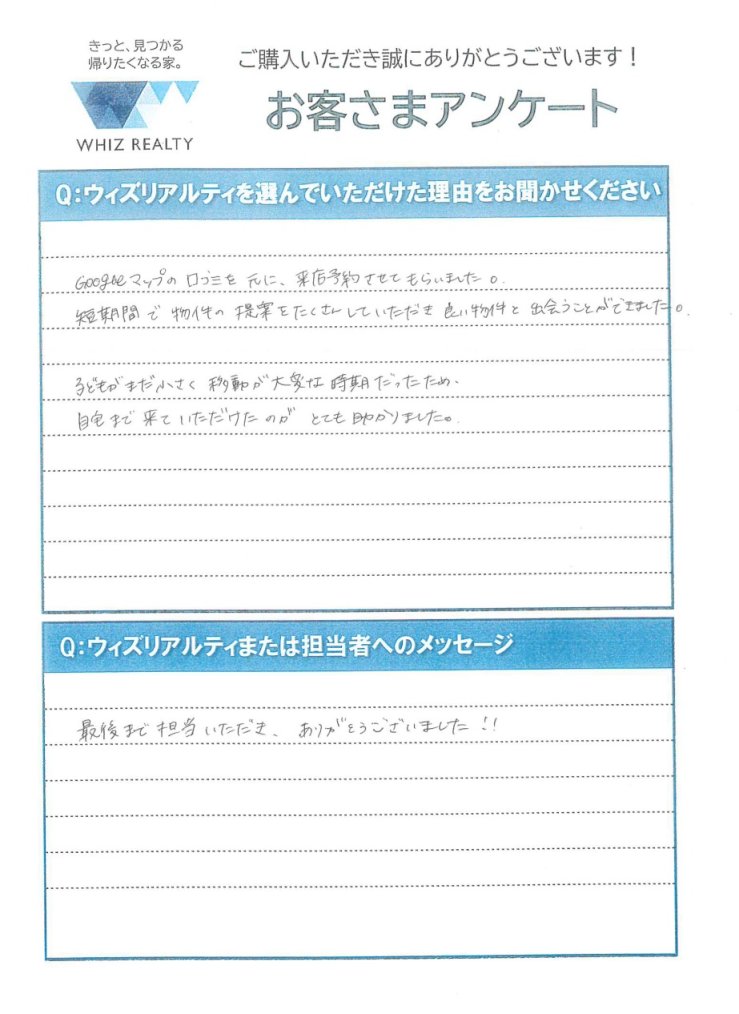 きっと、見つかる
帰りたくなる家。
WHIZ REALTY
ご購入いただき誠にありがとうございます！
お客さまアンケート
Q:ウィズリアルティを選んでいただけた理由をお聞かせください
Googleマップの口コミを元に、来店予約させてもらいました。
短期間で物件の提案をたくさんしていただき良い物件と出会うことができました。
子どもがまだ小さく移動が大変な時期だったため、
自宅まで来ていただけたのがとても助かりました。
Q:ウィズリアルティまたは担当者へのメッセージ
最後まで担当いただき、ありがとうございました!!